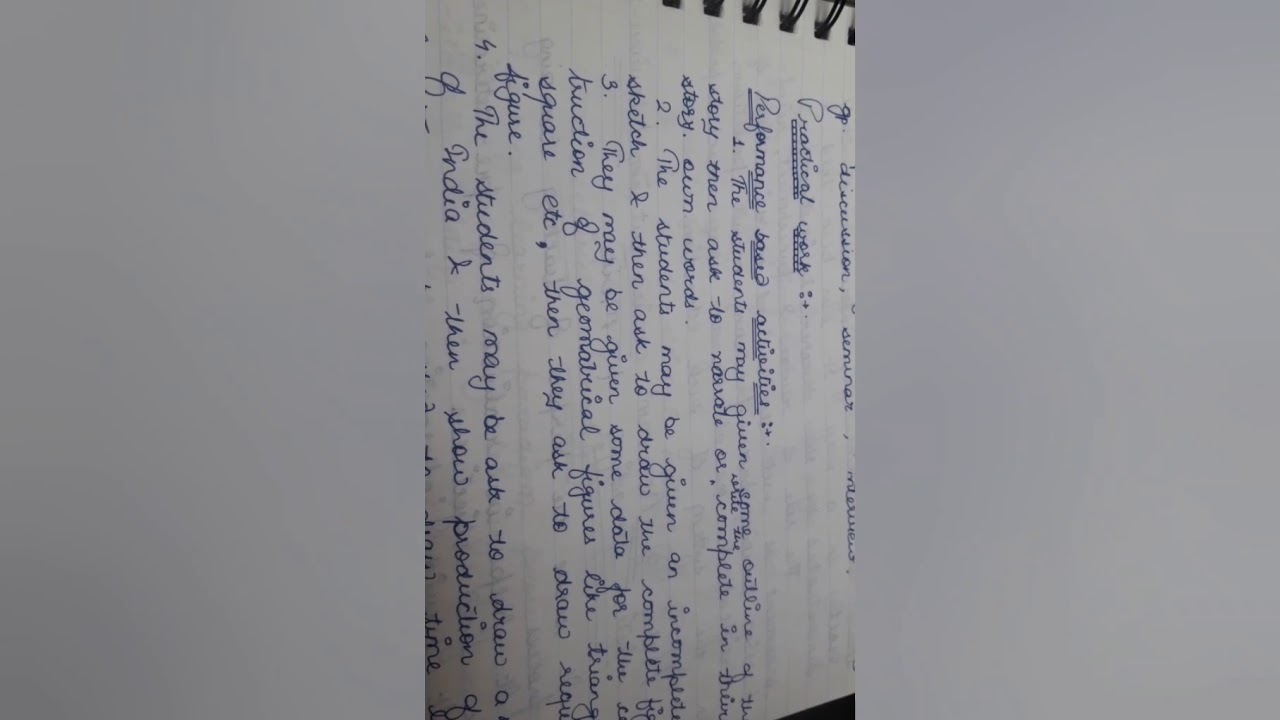 gp. discussion, seminar,
Practical work :+.
Performance based activities :+.
1. The students may given some outline of
write the
story then ask to narrate or, complete in their
story. own words.
2. The students may be given an incomplete
sketch & then ask to draw the complete
3. They may be given some data for the
truction of geomatrical figures like
square etc, then they ask to draw
figure.
4. The students may be ask to draw a
of India & then show production of